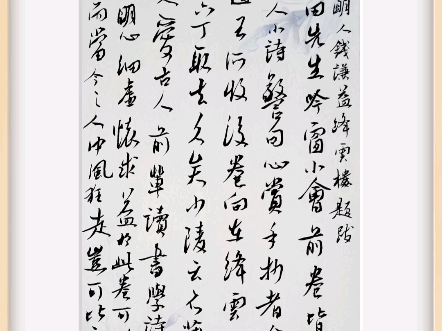 明人錢謙益絳雲樓題跋
田先生吟窗小會前卷皆
人小詩警句心賞手抄者
王所收後卷向在絳雲
六丁取去久矣少陵云不
愛古人前輩讀書學詩
明心細虛懷求益於此卷可
而當今之人中風狂走豈可皆